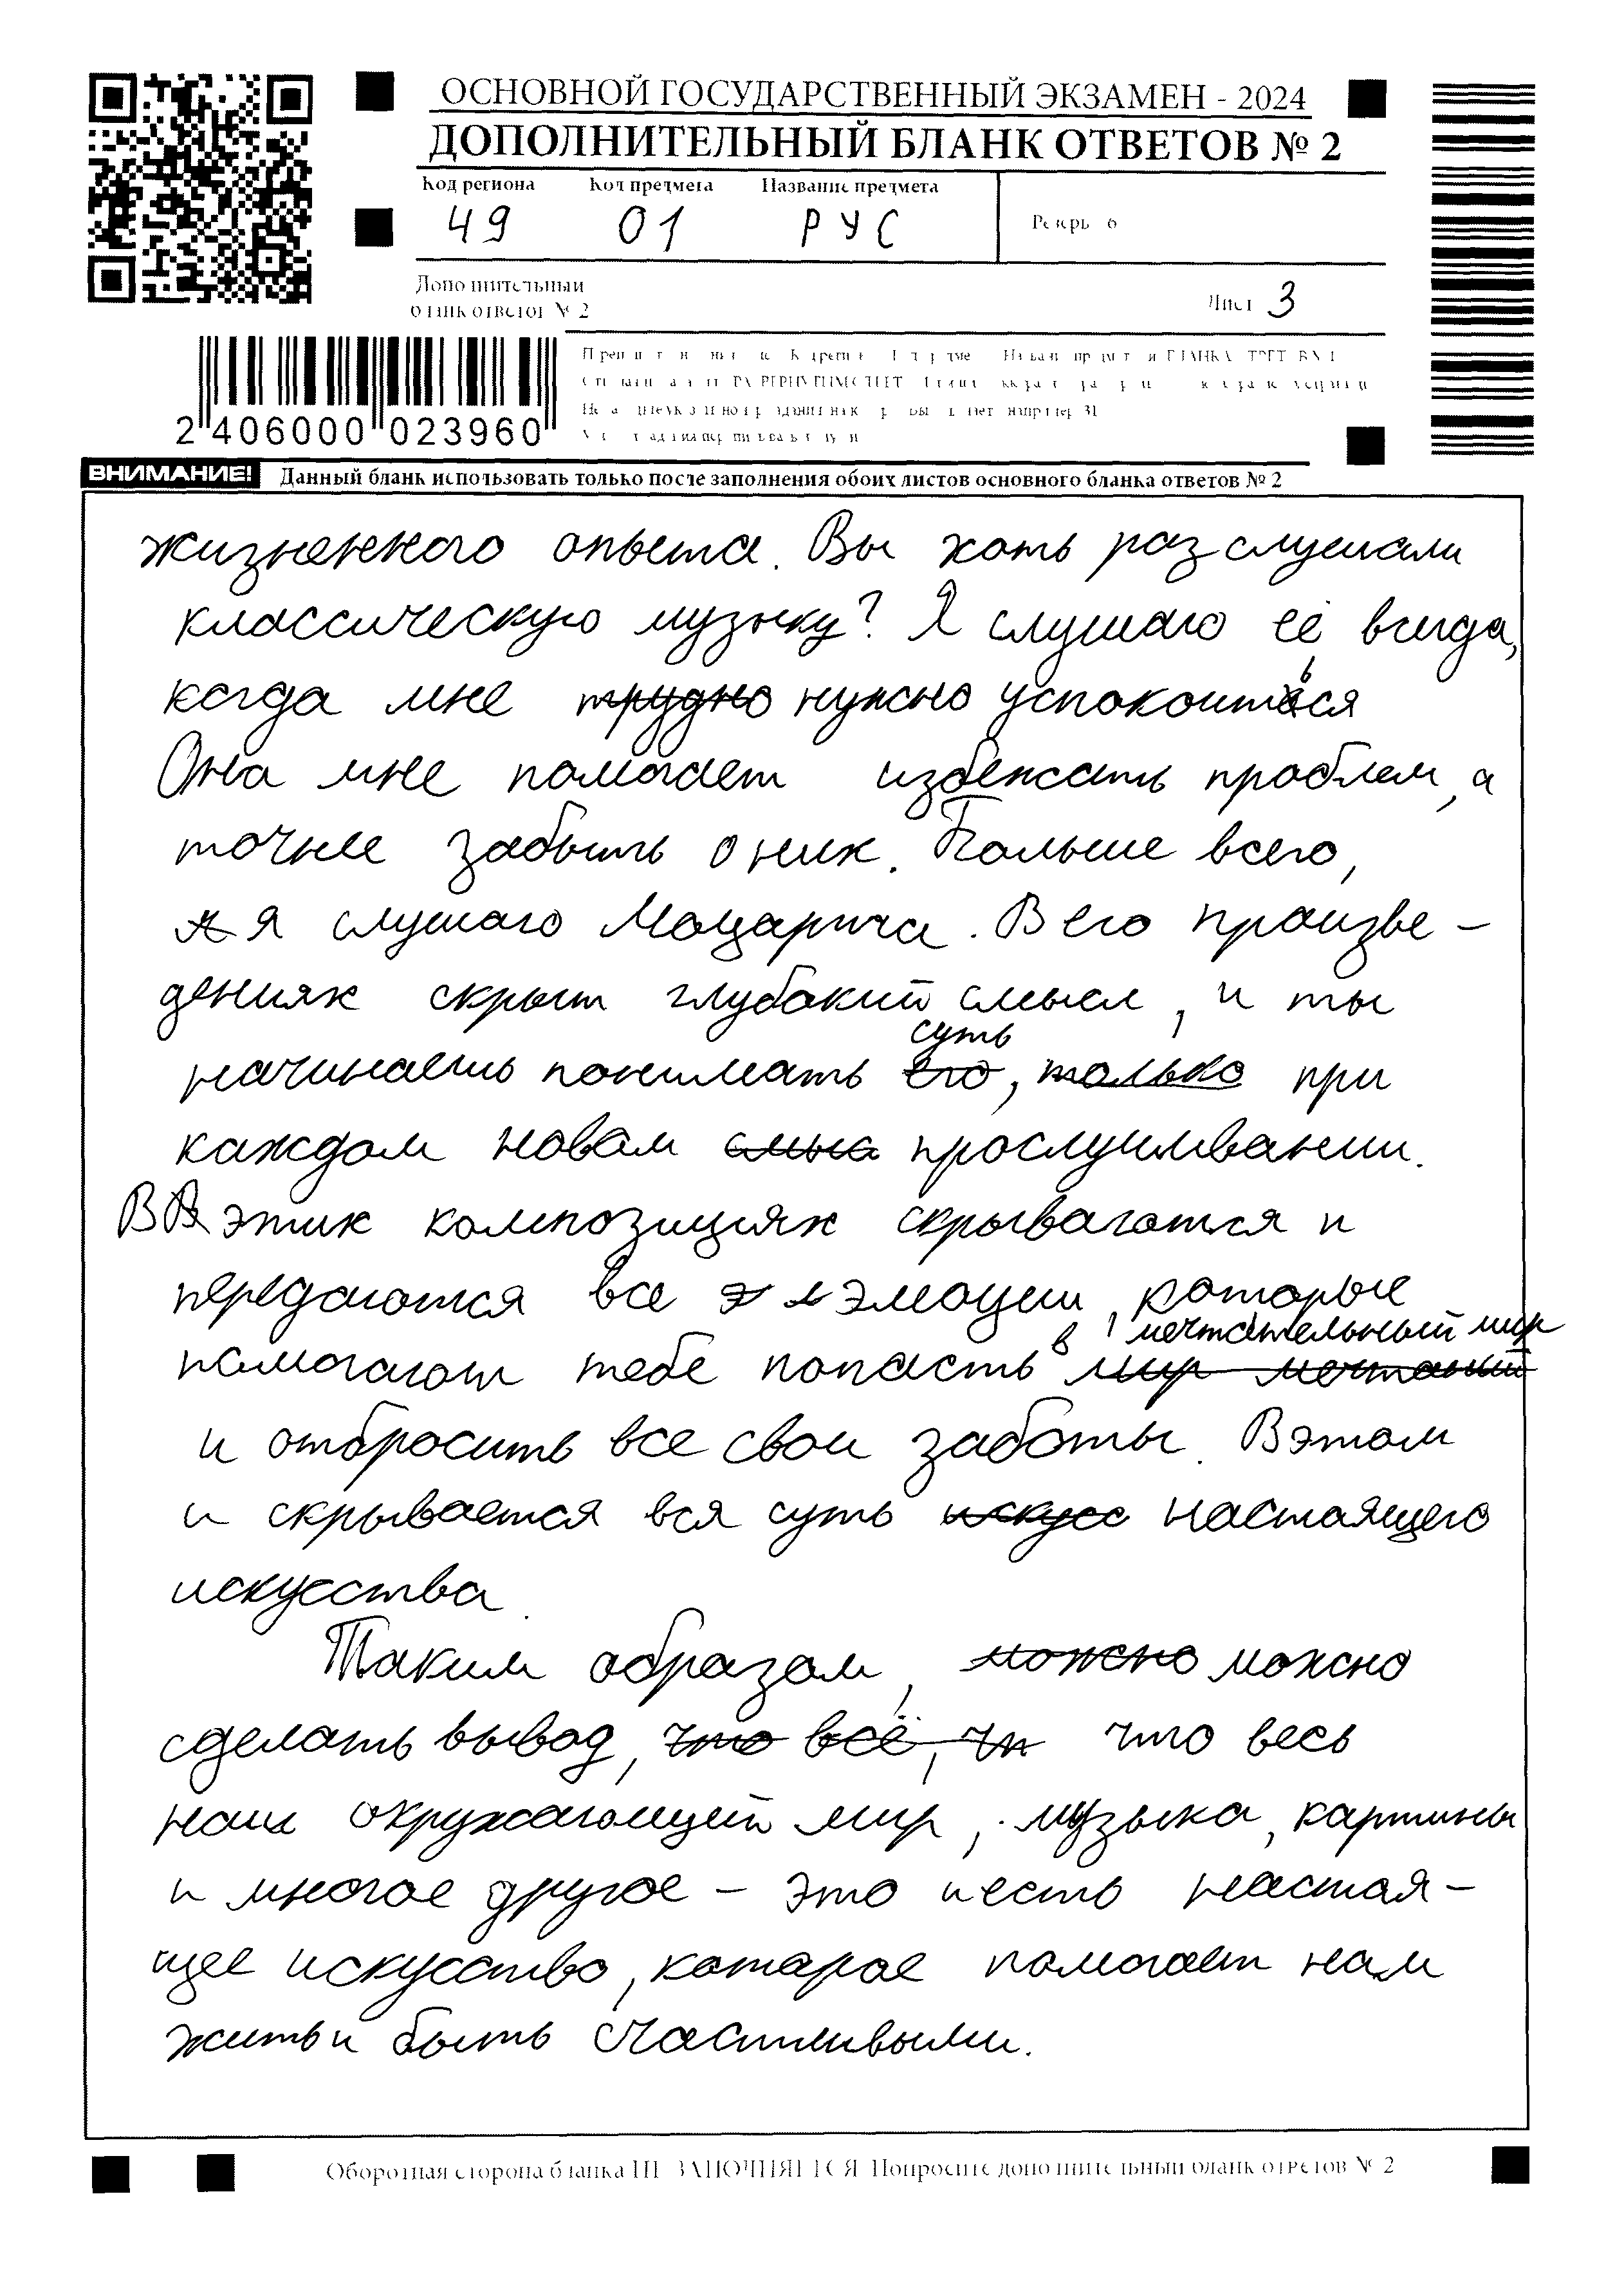 ОСНОВНОЙ ГОСУДАРСТВЕННЫЙ ЭКЗАМЕН - 2024
ДОПОЛНИТЕЛЬНЫЙ БЛАНК ОТВЕТОВ № 2
Код региона Код предмета Название предмета
49 01 РУС
Резерв - 6
Дополнительный
бланк ответов № 2
Лист 3
2 406000 023960
ВНИМАНИЕ! Данный бланк использовать только после заполнения обоих листов основного бланка ответов № 2
жизненного опыта. Вы хоть раз слушали
классическую музыку? Я слушаю её всегда,
когда мне трудно нужно успокоиться
Она мне помогает избежать проблем, а
точнее забыть о них. Больше всего,
я я слушаю Моцарта. В его произве-
дениях скрыт глубокий смысл, и ты
суть
начинаешь понимать его, только при
каждом новом смысл прослушивании.
В В этих композициях скрываются и
передаются все э э эмоции, которые
в мечтательный мир
помогают тебе попасть мир мечтаний
и отбросить все свои заботы. В этом
и скрывается вся суть искусс настоящего
искусства.
Таким образом, можно можно
сделать вывод, что всё, чт что весь
наш окружающий мир, музыка, картины
и многое другое - это и есть настоя-
щее искусство, которое помогает нам
жить и быть счастливыми.
Оборотная сторона бланка НЕ ЗАПОЛНЯЕТСЯ. Попросите дополнительный бланк ответов № 2